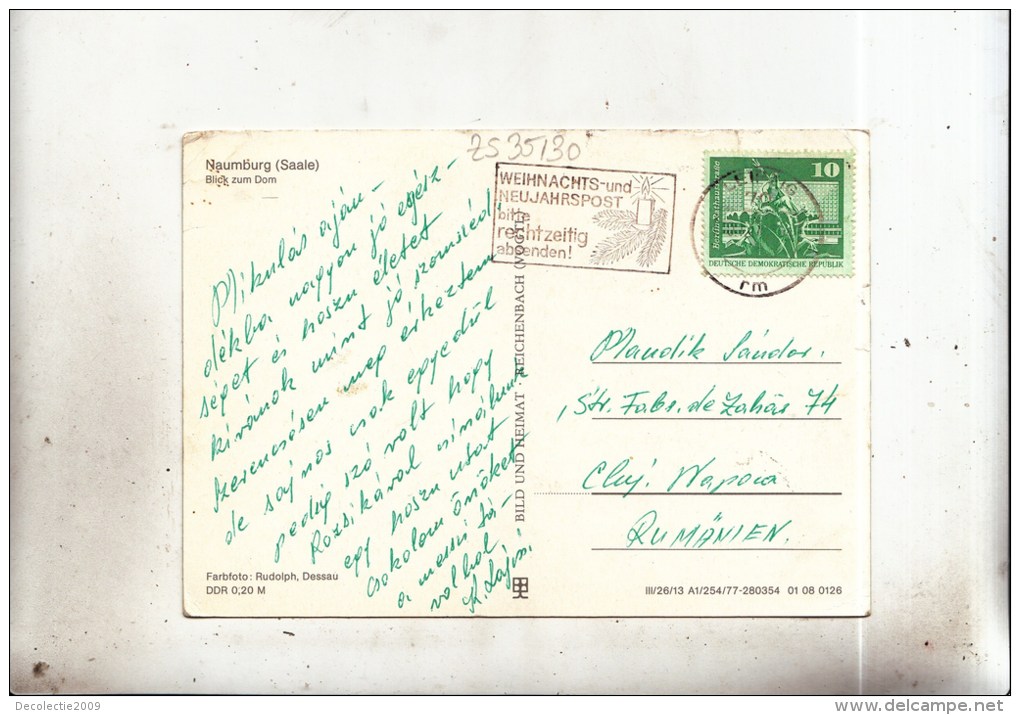 ZS 35130
Naumburg (Saale)
Blick zum Dom
WEIHNACHTS-und
NEUJAHRSPOST
bitte
rechtzeitig
absenden!
10
Berlin-Rathausstraße
DEUTSCHE DEMOKRATISCHE REPUBLIK
rm
Mikulás aján-
dékba nagyon jó egész-
séget és hoszu életet
kivánok mint jó szomszéd,
szerencsésen meg érkeztem
de sajnos csak egyedül
pedig szó volt hogy
Rozsikával sinálunk
egy hoszu utat
csokolom önöket
a messzi tá-
volbol
K. Lajos.
BILD UND HEIMAT REICHENBACH (VOGTL)
Sándor.
Str. Fabr. de Zahár 74
Cluj. Napoca
RUMÄNIEN.
Farbfoto: Rudolph, Dessau
DDR 0,20 M
III/26/13 A1/254/77-280354 01 08 0126
Decolectie2009
www.delcampe.net